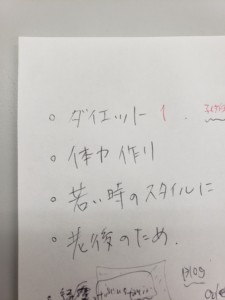 ○ ダイエット 1.
○ 体力作り
○ 若い時のスタイルに
○ 老後のため.
blog